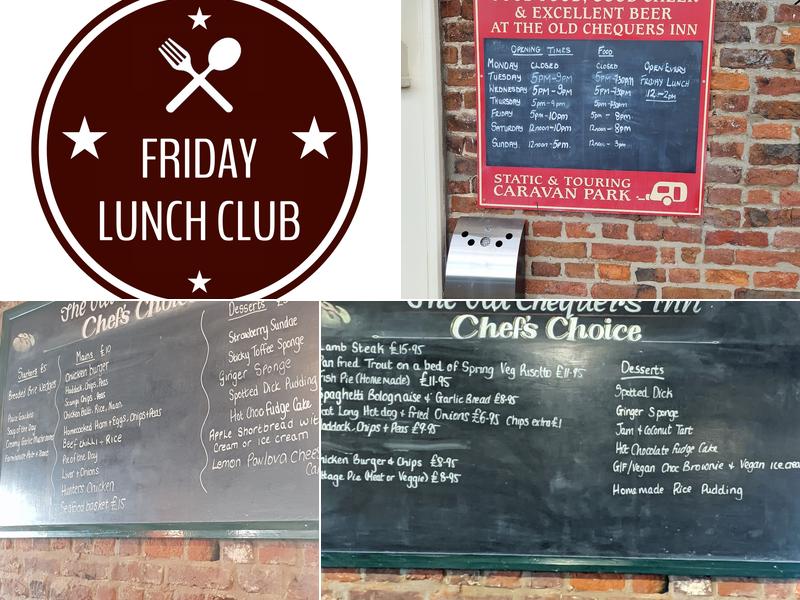 FRIDAY
LUNCH CLUB
& EXCELLENT BEER
AT THE OLD CHEQUERS INN
OPENING TIMES FOOD
MONDAY CLOSED CLOSED
TUESDAY 5PM-9PM 5PM-7:30PM
WEDNESDAY 5PM-9PM 5PM-7:30PM
THURSDAY 5pm-9pm 5pm-7:30pm
FRIDAY 5pm-10pm 5pm - 8pm
SATURDAY 12noon-10pm 12noon - 8pm
SUNDAY 12noon-5pm 12noon - 3pm
OPEN EVERY
FRIDAY LUNCH
12-2pm
STATIC & TOURING
CARAVAN PARK
The Old
Chef's Choice
Starters £5
Breaded Brie Wedges
Soup of the Day
Creamy Garlic Mushrooms
Farmhouse Pate + Toast
Mains £10
Chicken burger
Haddock, Chips, Peas
Scampi, Chips, Peas
Chicken Balti, Rice, Naan
Homecooked Ham + Eggs, Chips + Peas
Beef chilli + Rice
Pie of the Day
Liver + Onions
Hunters Chicken
Seafood basket £15
Desserts
Strawberry Sundae
Sticky Toffee Sponge
Ginger Sponge
Spotted Dick Pudding
Hot Choc Fudge Cake
Apple Shortbread
Cream or ice cream
Lemon Pavlova
The Old Chequers Inn
Chef's Choice
Lamb Steak £15-95
Pan fried Trout on a bed of Spring Veg Risotto £11-95
Fish Pie (Homemade) £11-95
Spaghetti Bolognaise & Garlic Bread £8-95
Long Hot dog & fried Onions £6-95 Chips extra £1
Haddock, Chips & Peas £9-95
Chicken Burger & Chips £8-95
Cottage Pie (Meat or Veggie) £8-95
Desserts
Spotted Dick
Ginger Sponge
Jam & Coconut Tart
Hot Chocolate Fudge Cake
G/F/Vegan Choc Brownie & Vegan ice cream
Homemade Rice Pudding